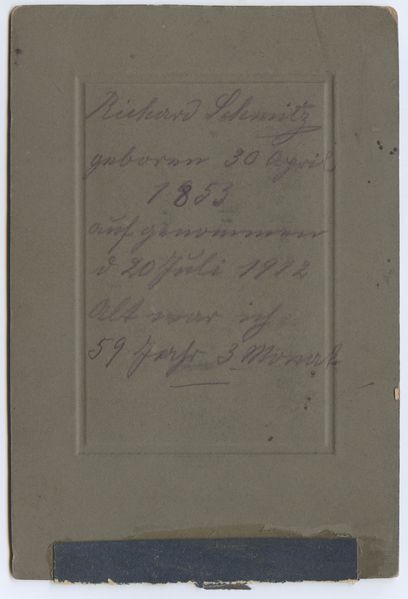 Richard Schmitz
geboren 30 April
1853
aufgenommen
d 20 Juli 1912
Alt war ich
59 Jahr 3 Monat